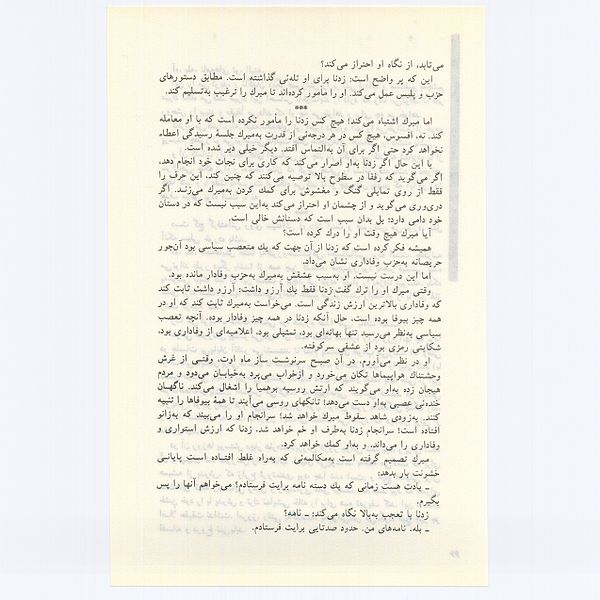 می‌تابد، از نگاه او احتراز می‌کند؟
این که پر واضح است: زدنا برای او تله‌ئی گذاشته است. مطابق دستورهای
حزب و پلیس عمل می‌کند. او را مأمور کرده‌اند تا میرك را ترغیب به‌تسلیم کند.
***
اما میرك اشتباه می‌کند؛ هیچ کس زدنا را مأمور نکرده است که با او معامله
کند. نه، افسوس، هیچ کس در هر درجه‌ئی از قدرت به‌میرك جلسهٔ رسیدگی اعطاء
نخواهد کرد حتی اگر برای آن به‌التماس افتد. دیگر خیلی دیر شده است.
با این حال اگر زدنا به‌او اصرار می‌کند که کاری برای نجات خود انجام دهد،
اگر می‌گوید که رفقا در سطوح بالا توصیه می‌کنند که چنین کند، این حرف را
فقط از روی تمایلی گنگ و مغشوش برای کمك کردن به‌میرك می‌زنـد. اگر
دری‌وری می‌گوید و از چشمان او احتراز می‌کند به‌این سبب نیست که در دستان
خود دامی دارد؛ بل بدان سبب است که دستانش خالی است.
آیا میرك هیچ وقت او را درك کرده است؟
همیشه فکر کرده است که زدنا از آن جهت که یك متعصب سیاسی بود آن‌جور
حریصانه به‌حزب وفاداری نشان می‌داد.
اما این درست نیست. او به‌سبب عشقش به‌میرك به‌حزب وفادار مانده بود.
وقتی میرك او را ترك گفت زدنا فقط یك آرزو داشت: آرزو داشت ثابت کند
که وفاداری بالاترین ارزش زندگی است. می‌خواست به‌میرك ثابت کند که او در
همه چیز بیوفا بوده است، حال آنکه زدنا در همه چیز وفادار بوده. آنچه تعصب
سیاسی به‌نظر می‌رسید تنها بهانه‌ای بود، تمثیلی بود، اعلامیه‌ای از وفاداری بود،
شکایتی رمزی بود از عشقی سرکوفته.
او در نظر می‌آورم، در آن صبـح سرنوشت ساز ماه اوت، وقتـی از غرش
وحشتناك هواپیماها تکان می‌خورد و ازخواب می‌پرد به‌خیابـان می‌دود و مردم
هیجان زده به‌او می‌گویند که ارتش روسیه بوهمیا را اشغال می‌کند. ناگهـان
خنده‌ئی عصبی به‌او دست می‌دهد؛ تانکهای روسی می‌آیند تا همهٔ بیوفاها را تنبیه
کنند. به‌زودی شاهد سقوط میرك خواهد شد؛ سرانجام او را می‌بیند که به‌زانو
افتاده است؛ سرانجام زدنا به‌طرف او خم خواهد شد، زدنا که ارزش استواری و
وفاداری را می‌داند، و به‌او کمك خواهد کرد.
میرك تصمیم گرفته است به‌مکالمه‌ئی که به‌راه غلط افتـاده است پایانـی
خشونت بار بدهد:
ـ یادت هست زمانی که یك دسته نامه برایت فرستادم؟ می‌خواهم آنها را پس
بگیرم.
زدنا با تعجب به‌بالا نگاه می‌کند: ـ نامه؟
ـ بله، نامه‌های من. حدود صدتایی برایت فرستادم.